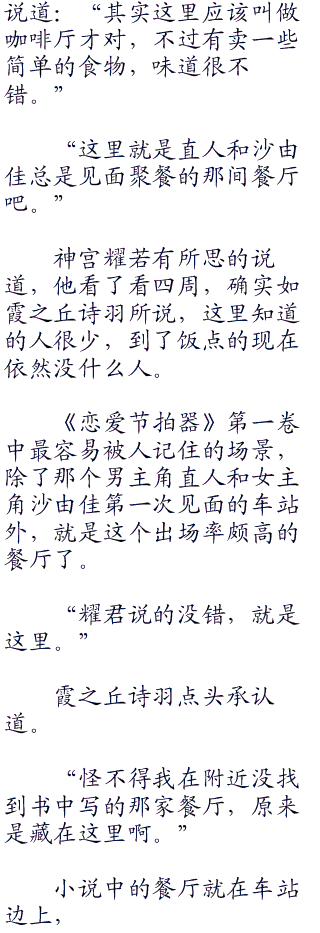 说道：“其实这里应该叫做
咖啡厅才对，不过有卖一些
简单的食物，味道很不
错。”
“这里就是直人和沙由
佳总是见面聚餐的那间餐厅
吧。”
神宫耀若有所思的说
道，他看了看四周，确实如
霞之丘诗羽所说，这里知道
的人很少，到了饭点的现在
依然没什么人。
《恋爱节拍器》第一卷
中最容易被人记住的场景，
除了那个男主角直人和女主
角沙由佳第一次见面的车站
外，就是这个出场率颇高的
餐厅了。
“耀君说的没错，就是
这里。”
霞之丘诗羽点头承认
道。
“怪不得我在附近没找
到书中写的那家餐厅，原来
是藏在这里啊。”
小说中的餐厅就在车站
边上，